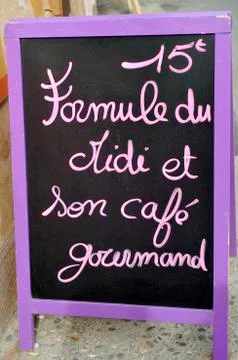 15€
Formule du
Midi et
son café
gourmand